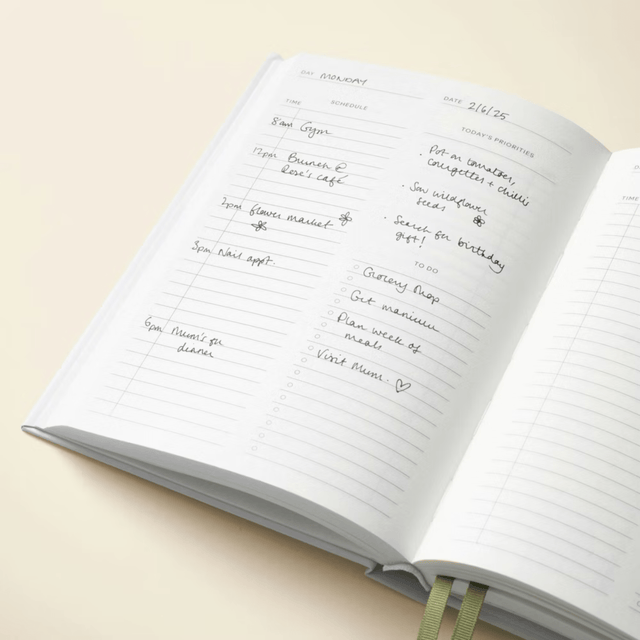 DAY MONDAY
DATE 2/6/25
TIME SCHEDULE
8am Gym
12pm Brunch @
Rose's café
flower market
Nail appt
6pm Mum's for
dinner
TODAY'S PRIORITIES
• Pot on tomatoes,
courgettes + chillis
• Sow wildflower
seeds
• Search for birthday
gift!
TO DO
Grocery shop
Get manicure
Plan week of
meals
Visit Mum. ♡
TIME